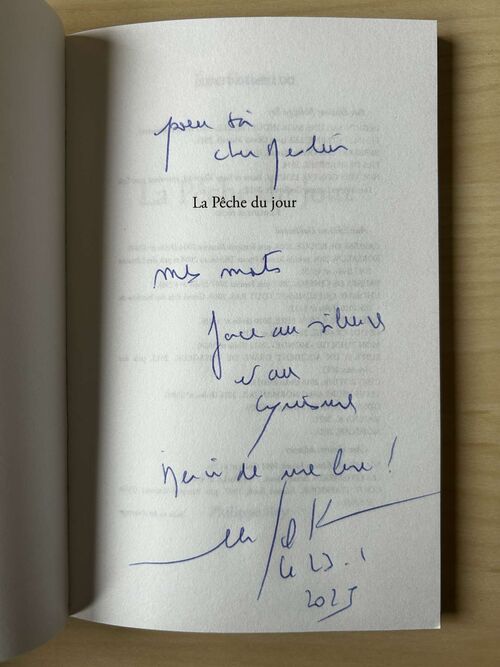 pour toi
cher Merlin
La Pêche du jour
mes mots
face au silence
et au
cynisme
Merci de me lire !
le 23.1
2025